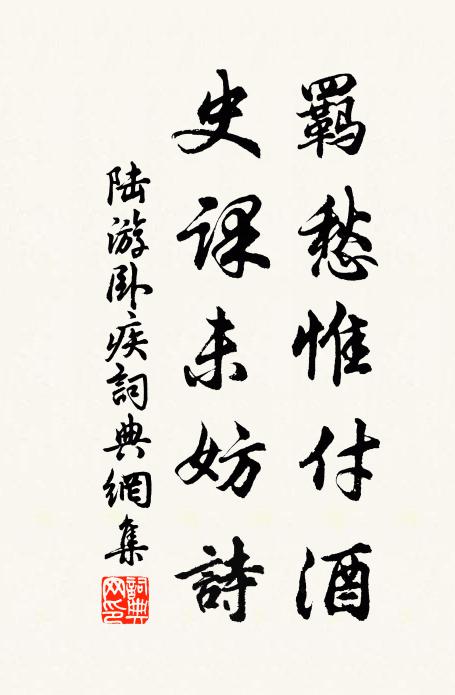 羈愁惟付酒
史課未妨詩
陆游卧疾詞典網集
詞典网印